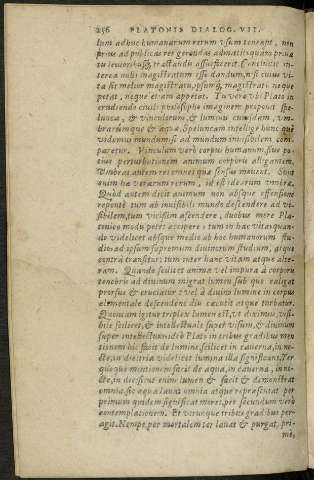 256 PLATONIS DIALOG. VII.
lum adhuc humanarum rerum usum teneant, non
prius ad publicas res gerendas admitti quàm priua
tis leuioribusq́; tractandis assuefecerit. Concludit in-
terea nulli magistratum esse dandum, nisi cuius vi-
ta sit melior magistratu, ipsumq́; magistratū neque
petat, neque etiam appetat. Tu vero vbi Plato in
erudiendo ciuili philosopho imaginem proponit spe-
luncæ, & vinculorum, & luminis cuiusdam, vm-
brarumque & aquæ, Speluncam intellige hunc quē
videmus mundum si ad mundum inuisibilem com-
paretur. Vinculum verò corpus humanum, siue po-
tius perturbationem animum corpori alligantem.
Vmbras autem res omnes quæ sensus mouent. Sunt
enim hæ verarum rerum, id est idearum vmbræ.
Quòd autem dicit animum non absque offensione
repentè tum ab inuisibili mundo descendere ad vi-
sibilem, tum vicissim ascendere, duobus mere Pla-
tonico modis accipere: tum in hac vita quan-
do videlicet absque medio ab hoc humanorum stu-
dio ad ipsum supremum diuinorum studium, atque
contrà transitur: tum inter hanc vitam atque alte-
ram. Quando scilicet anima vel impura à corporis
tenebris ad diuinum migrat lumen sub quo caligat
prorsus & cruciatur: vel à diuino lumine in corpus
elementale descendens diu cæcutit atque turbatur.
Quoniam igitur triplex lumen est, vt diximus, visi-
bile scilicet, & intellectuale super visum, & diuinum
super intellectum ideò Plato in tribus gradibus men-
tionem hîc facit de lumine, scilicet in cauerna, in no-
cte, in die, tria videlicet lumina illa significans. Ter
quoque mentionem facit de aqua, in cauerna, in no-
cte, in die, sicut enim lumen & facit & demonstrat
omnia, sic aqua lauat omnia atque repræsentat per
primum quidem significat mores, per secundum verò
contemplationem. Et vtrunque tribus gradibus per-
agit. Nempe per mortalem res lauat & purgat, pri-
mū,